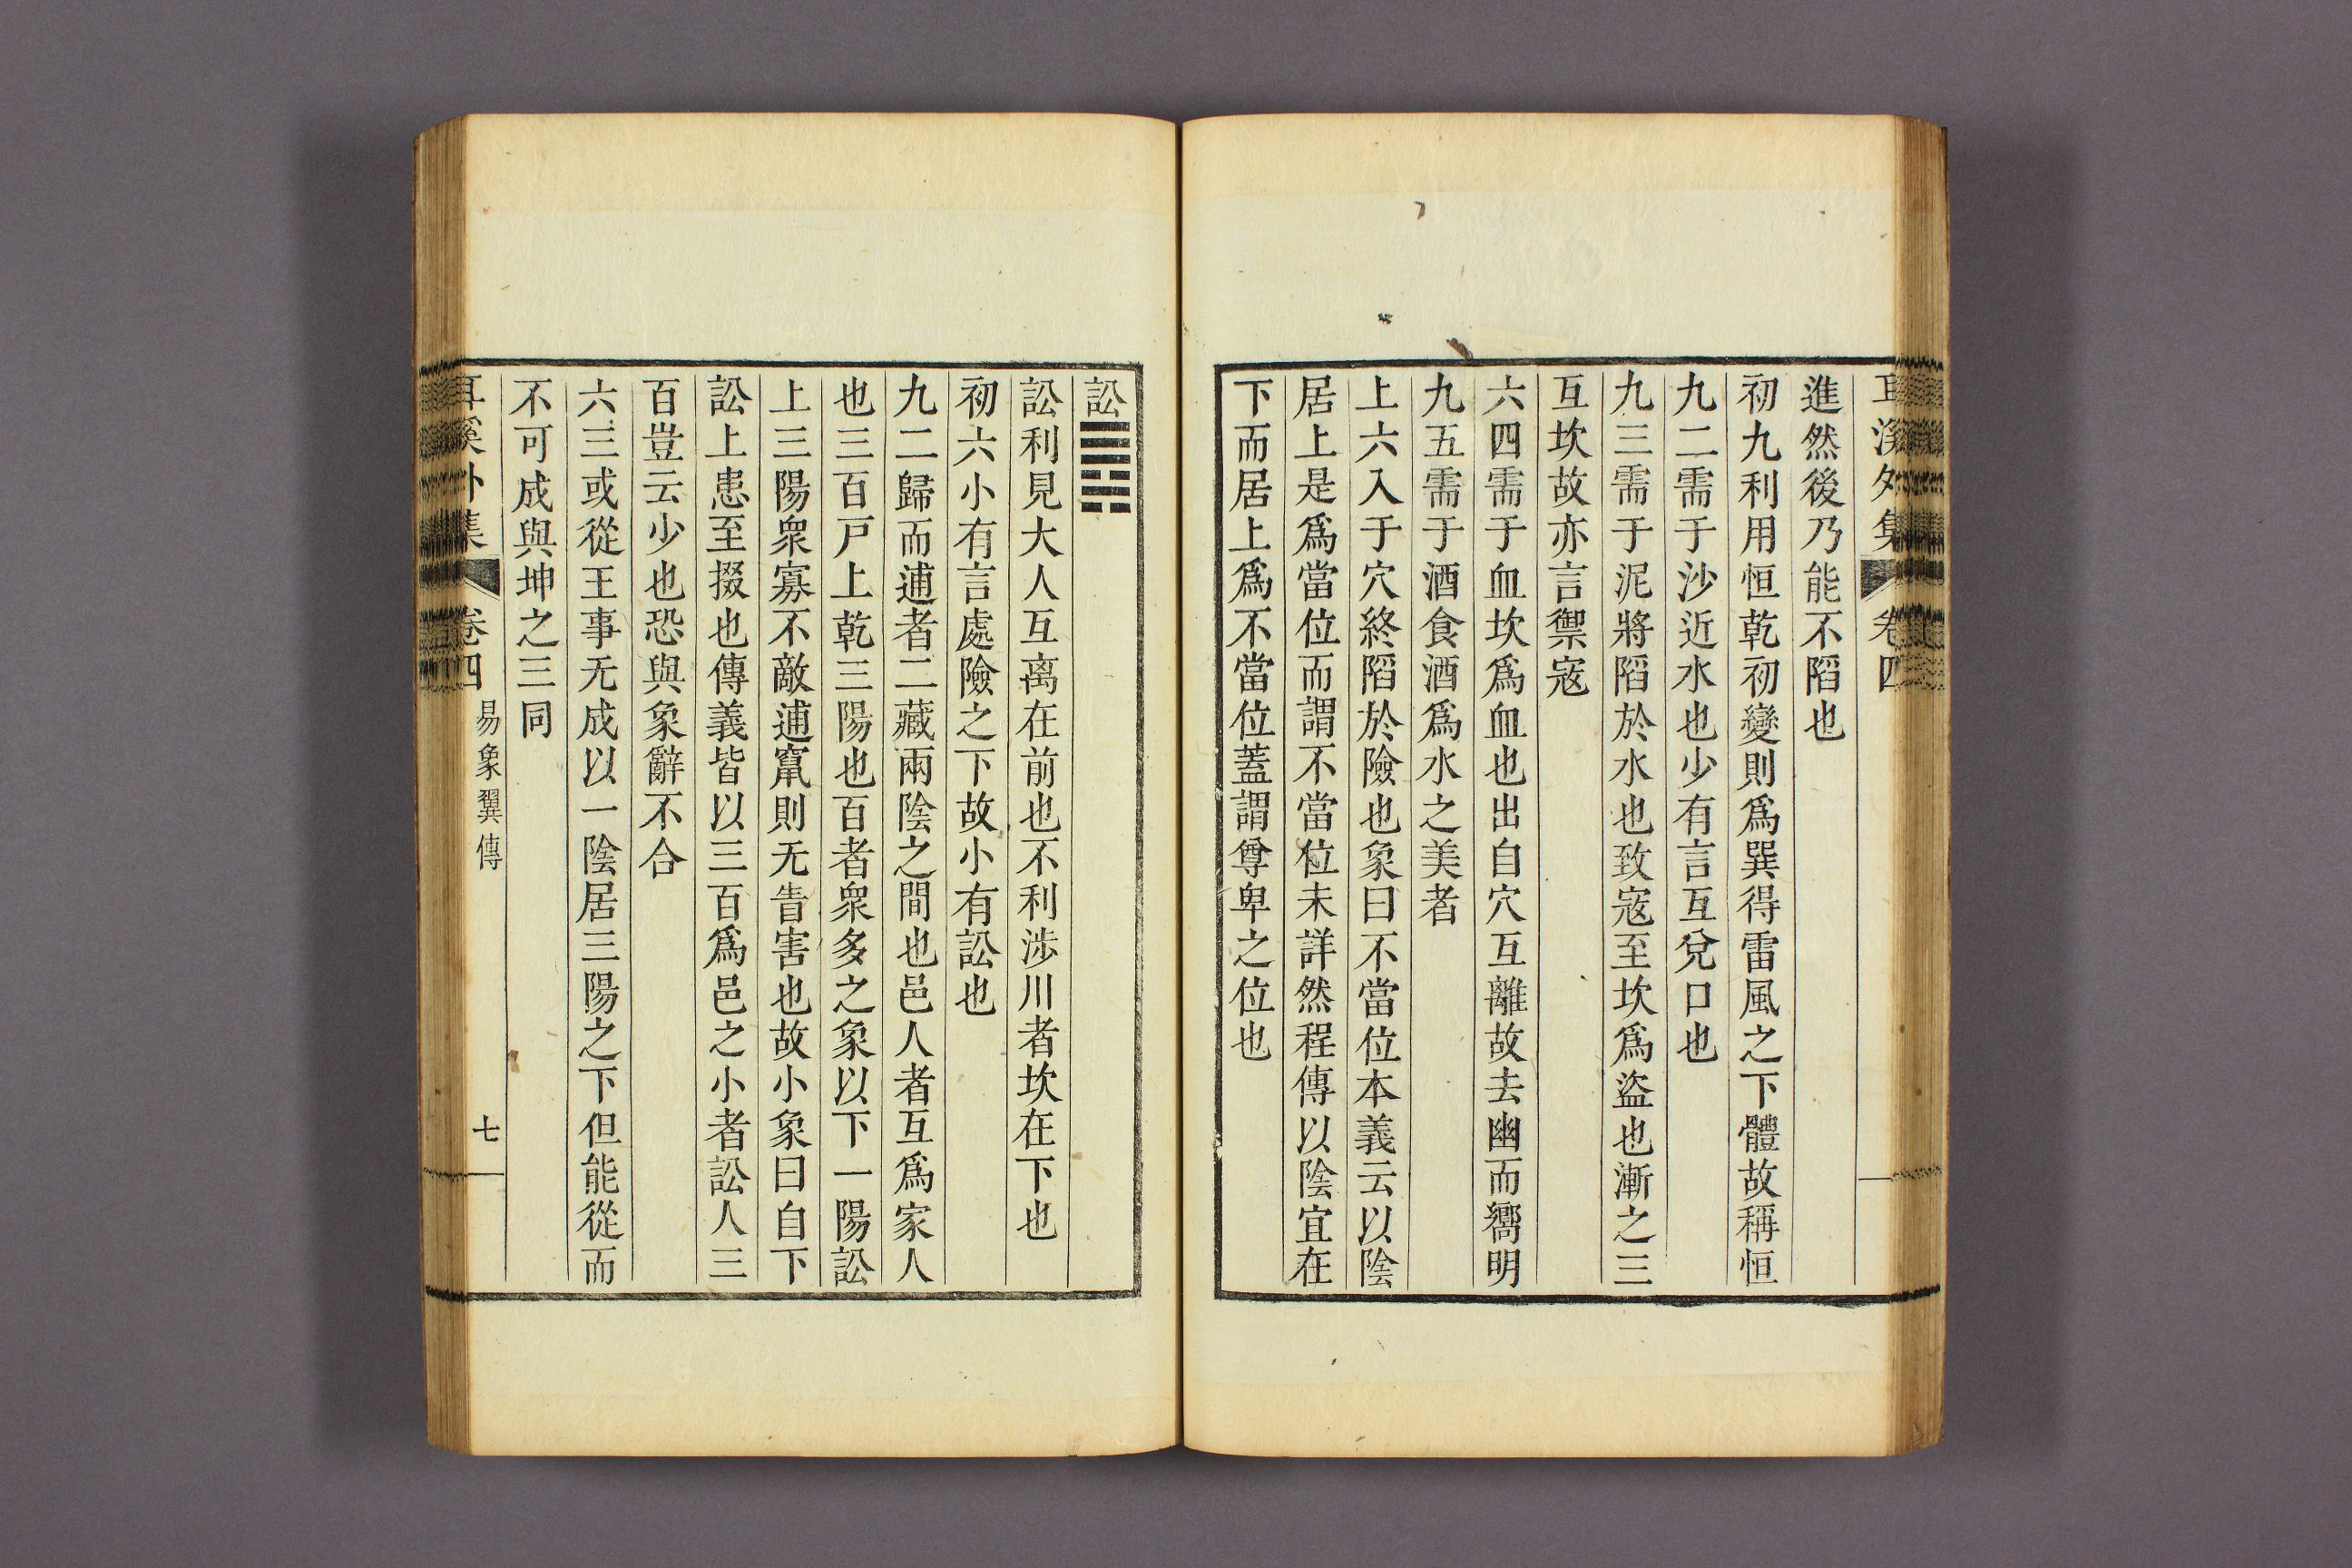 耳溪外集 卷四
進然後乃能不陷也
初九利用恒乾初變則爲巽得雷風之下體故稱恒
九二需于沙近水也少有言互兌口也
九三需于泥將陷於水也致寇至坎爲盜也漸之三
互坎故亦言禦寇
六四需于血坎爲血也出自穴互離故去幽而嚮明
九五需于酒食酒爲水之美者
上六入于穴終陷於險也象曰不當位本義云以陰
居上是爲當位而謂不當位未詳然程傳以陰宜在
下而居上爲不當位蓋謂尊卑之位也
訟䷅
訟利見大人互离在前也不利涉川者坎在下也
初六小有言處險之下故小有訟也
九二歸而逋者二藏兩陰之間也邑人者互爲家人
也三百戶上乾三陽也百者衆多之象以下一陽訟
上三陽衆寡不敵逋竄則无眚害也故小象曰自下
訟上患至掇也傳義皆以三百爲邑之小者訟人三
百豈云少也恐與象辭不合
六三或從王事无成以一陰居三陽之下但能從而
不可成與坤之三同
耳溪外集 卷四 易象翼傳 七